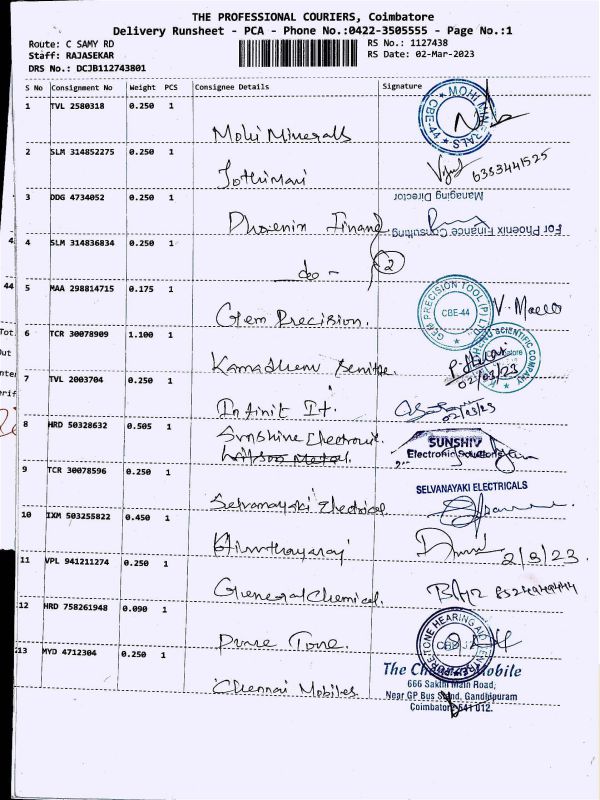 THE PROFESSIONAL COURIERS, Coimbatore
Delivery Runsheet - PCA - Phone No.:0422-3505555 - Page No.:1
Route: C SAMY RD
RS No.: 1127438
Staff: RAJASEKAR
RS Date: 02-Mar-2023
DRS No.: DCJB112743801
S No Consignment No Weight PCS Consignee Details Signature
1 TVL 2580318 0.250 1
MOHI MINERALS
CBE-44
Mohi Minerals
2 SLM 314852275 0.250 1
6383441525
Jothimani
3 DDG 4734052 0.250 1
Managing Director
Phoenix Finance
For Phoenix Finance Consulting
4 SLM 314836834 0.250 1
- do - 2
5 MAA 298814715 0.175 1
GEM PRECISION TOOL (P) LTD
CBE-44
Gem Precision.
6 TCR 30078909 1.100 1
SCIENTIFIC COMPANY
02/03/23
7 TVL 2003704 0.250 1
Infinit It.
02/03/23
8 HRD 50328632 0.505 1
Sunshine Electronic.
SUNSHIV
Electronic Solutions
9 TCR 30078596 0.250 1
SELVANAYAKI ELECTRICALS
Selvanayaki Electrical
10 IXM 503255822 0.450 1
2/3/23.
11 VPL 941211274 0.250 1
General Chemical.
12 HRD 758261948 0.090 1
PURETONE HEARING AID CENTRE
Pure Tone.
13 MYD 4712304 0.250 1
The Chennai Mobile
666 Sakthi Main Road,
Near GP Bus Stand, Gandhipuram
Coimbatore-641 012.
Chennai Mobiles